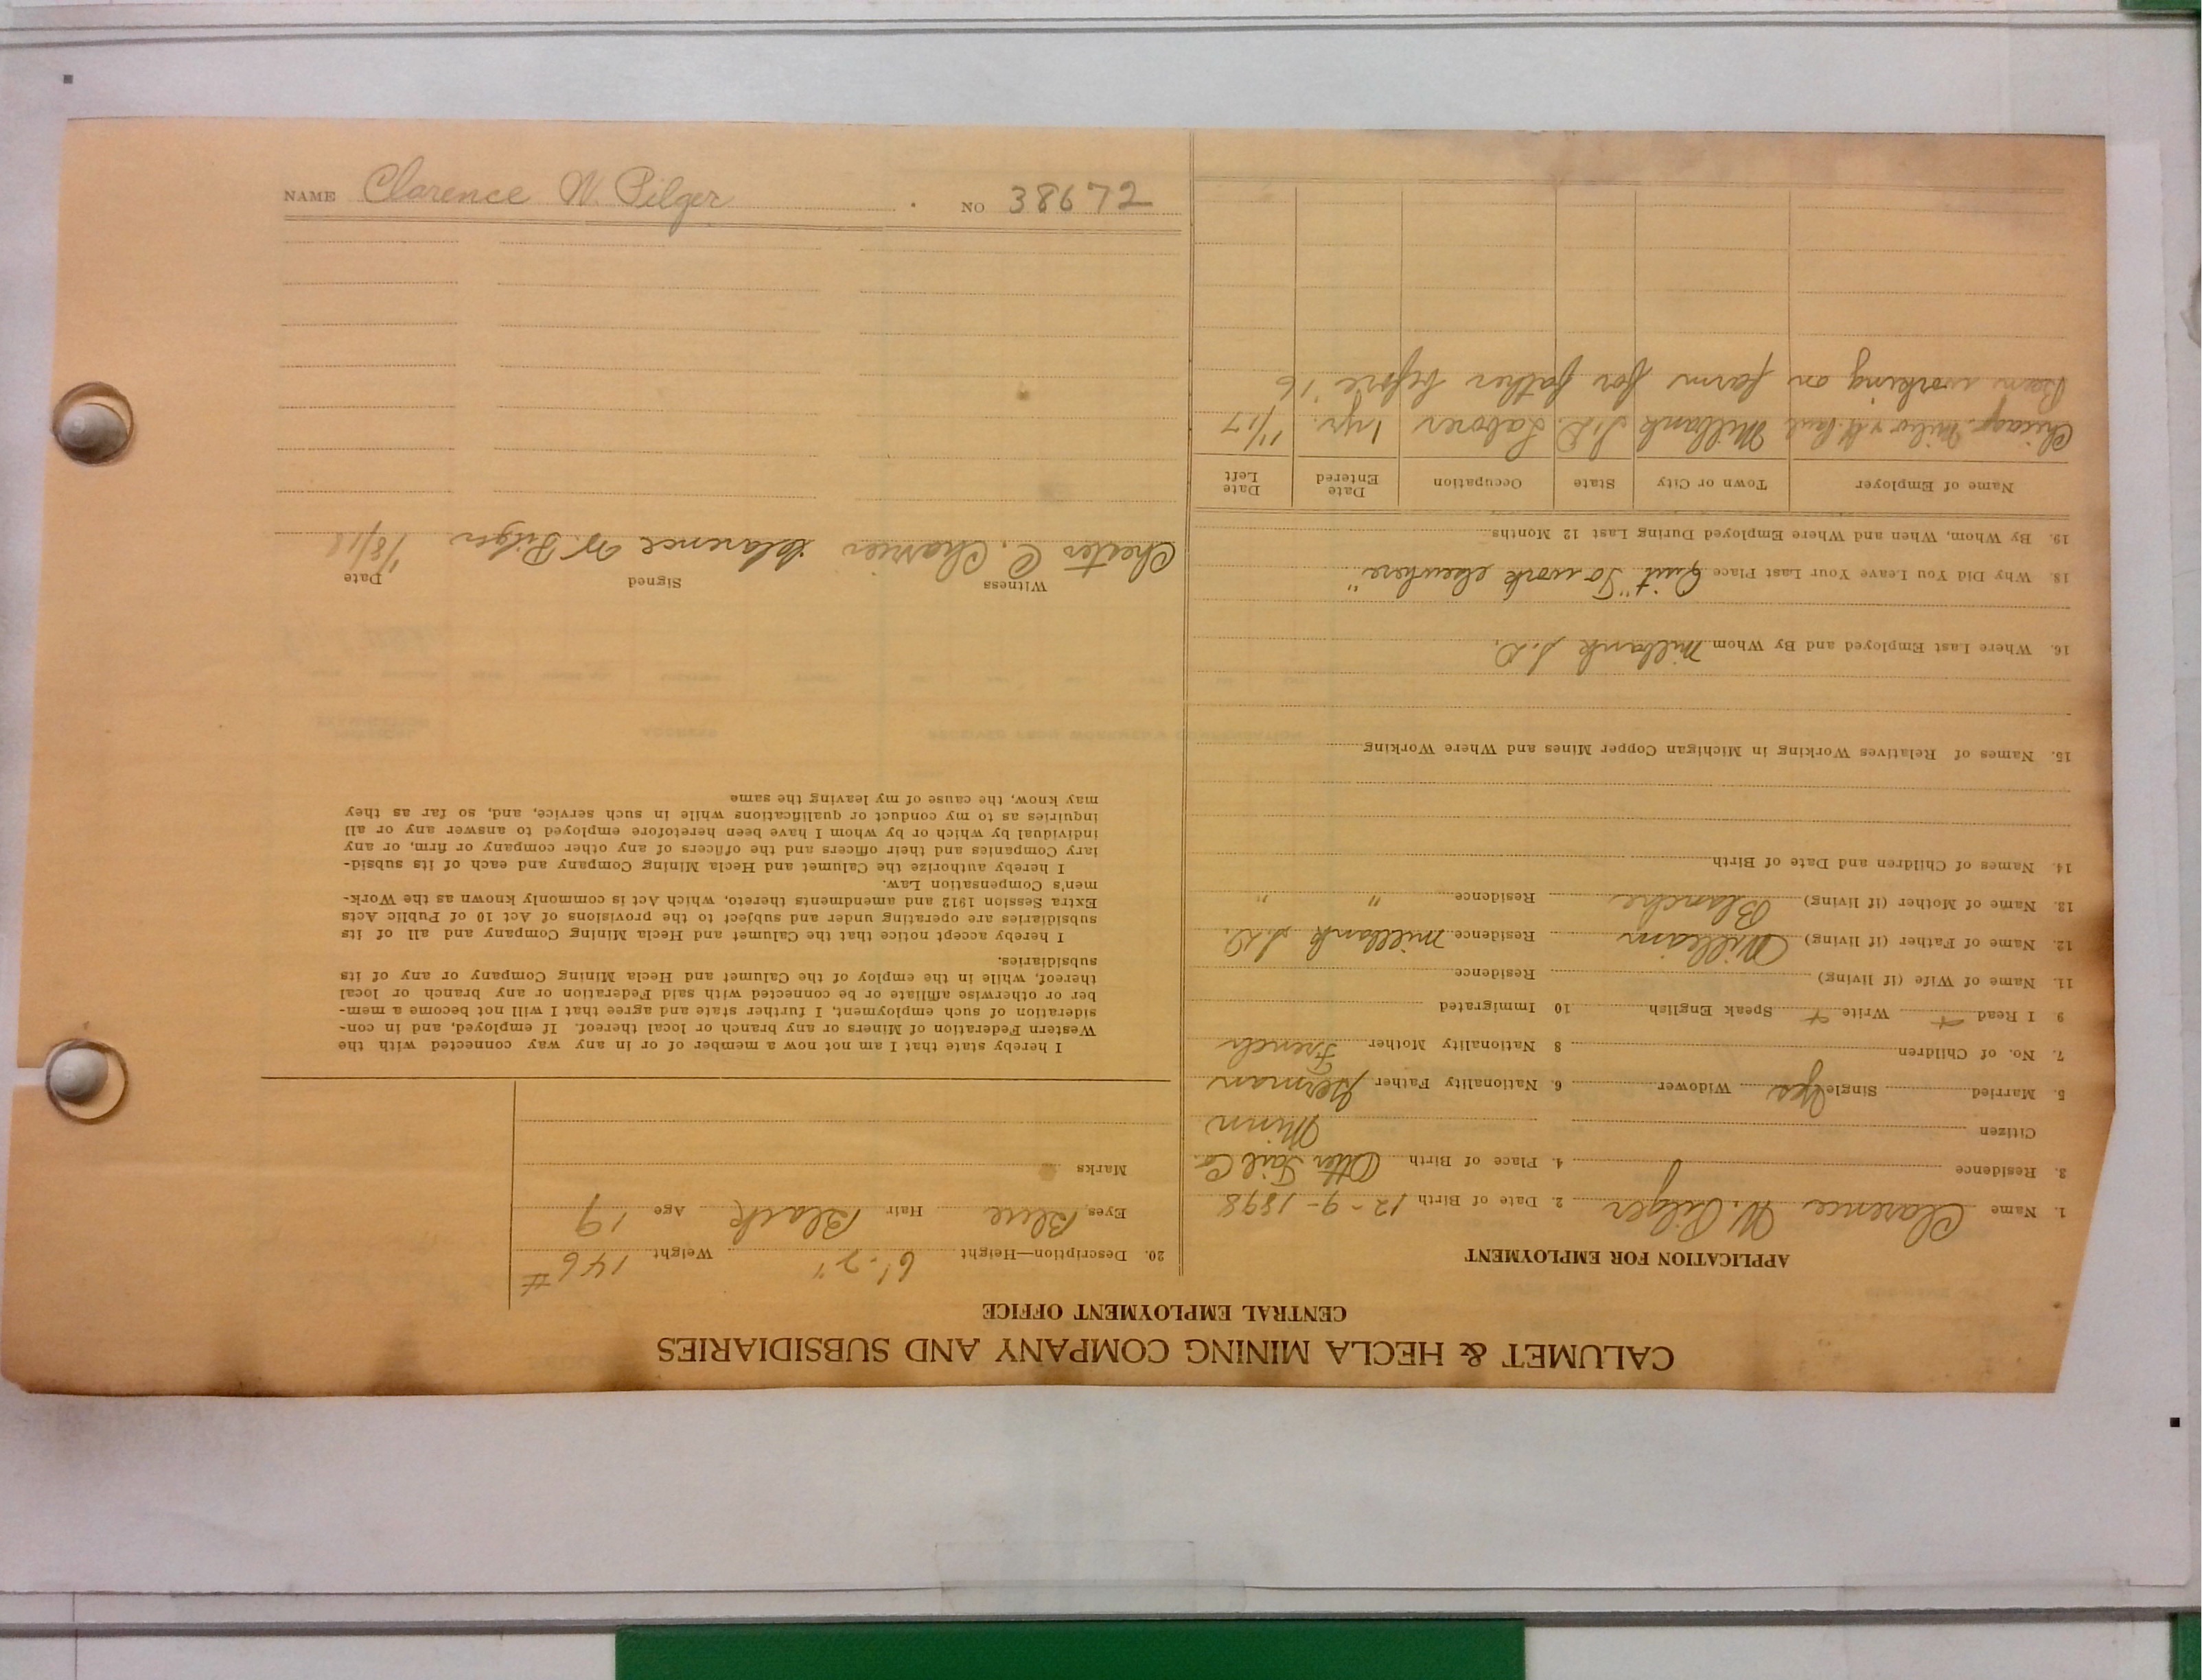 CALUMET & HECLA MINING COMPANY AND SUBSIDIARIES
CENTRAL EMPLOYMENT OFFICE
APPLICATION FOR EMPLOYMENT
1. Name Clarence W. Pilger 2. Date of Birth 12-9-1898
3. Residence 4. Place of Birth Otter Tail Co.
Citizen Minn
5. Married Single Yes Widower 6. Nationality Father German
7. No. of Children 8 Nationality Mother French
9 I Read + Write + Speak English 10 Immigrated
11. Name of Wife (if living) Residence
12. Name of Father (if living) William Residence Milbank S.D.
13. Name of Mother (if living) Blanche Residence " "
14. Names of Children and Date of Birth
15. Names of Relatives Working in Michigan Copper Mines and Where Working
16. Where Last Employed and By Whom Milbank S.D.
18. Why Did You Leave Your Last Place Quit "To work elsewhere"
19. By Whom, When and Where Employed During Last 12 Months
Name of Employer Town or City State Occupation Date Entered Date Left
Chicago. Milw & St. Paul Millbank S.D. Laborer 1 yr. 11/17
Been working on farm for father before '16
20. Description—Height 6'-2" Weight 146#
Eyes Blue Hair Black Age 19
Marks
I hereby state that I am not now a member of or in any way connected with the
Western Federation of Miners or any branch or local thereof. If employed, and in con-
sideration of such employment, I further state and agree that I will not become a mem-
ber or otherwise affiliate or be connected with said Federation or any branch or local
thereof, while in the employ of the Calumet and Hecla Mining Company or any of its
subsidiaries.
I hereby accept notice that the Calumet and Hecla Mining Company and all of its
subsidiaries are operating under and subject to the provisions of Act 10 of Public Acts
Extra Session 1912 and amendments thereto, which Act is commonly known as the Work-
men's Compensation Law.
I hereby authorize the Calumet and Hecla Mining Company and each of its subsid-
iary Companies and their officers and the officers of any other company or firm, or any
individual by which or by whom I have been heretofore employed to answer any or all
inquiries as to my conduct or qualifications while in such service, and, so far as they
may know, the cause of my leaving the same
Witness Signed Date
Chester C. Clarence W. Pilger 1/8/18
NAME Clarence W. Pilger NO 38672